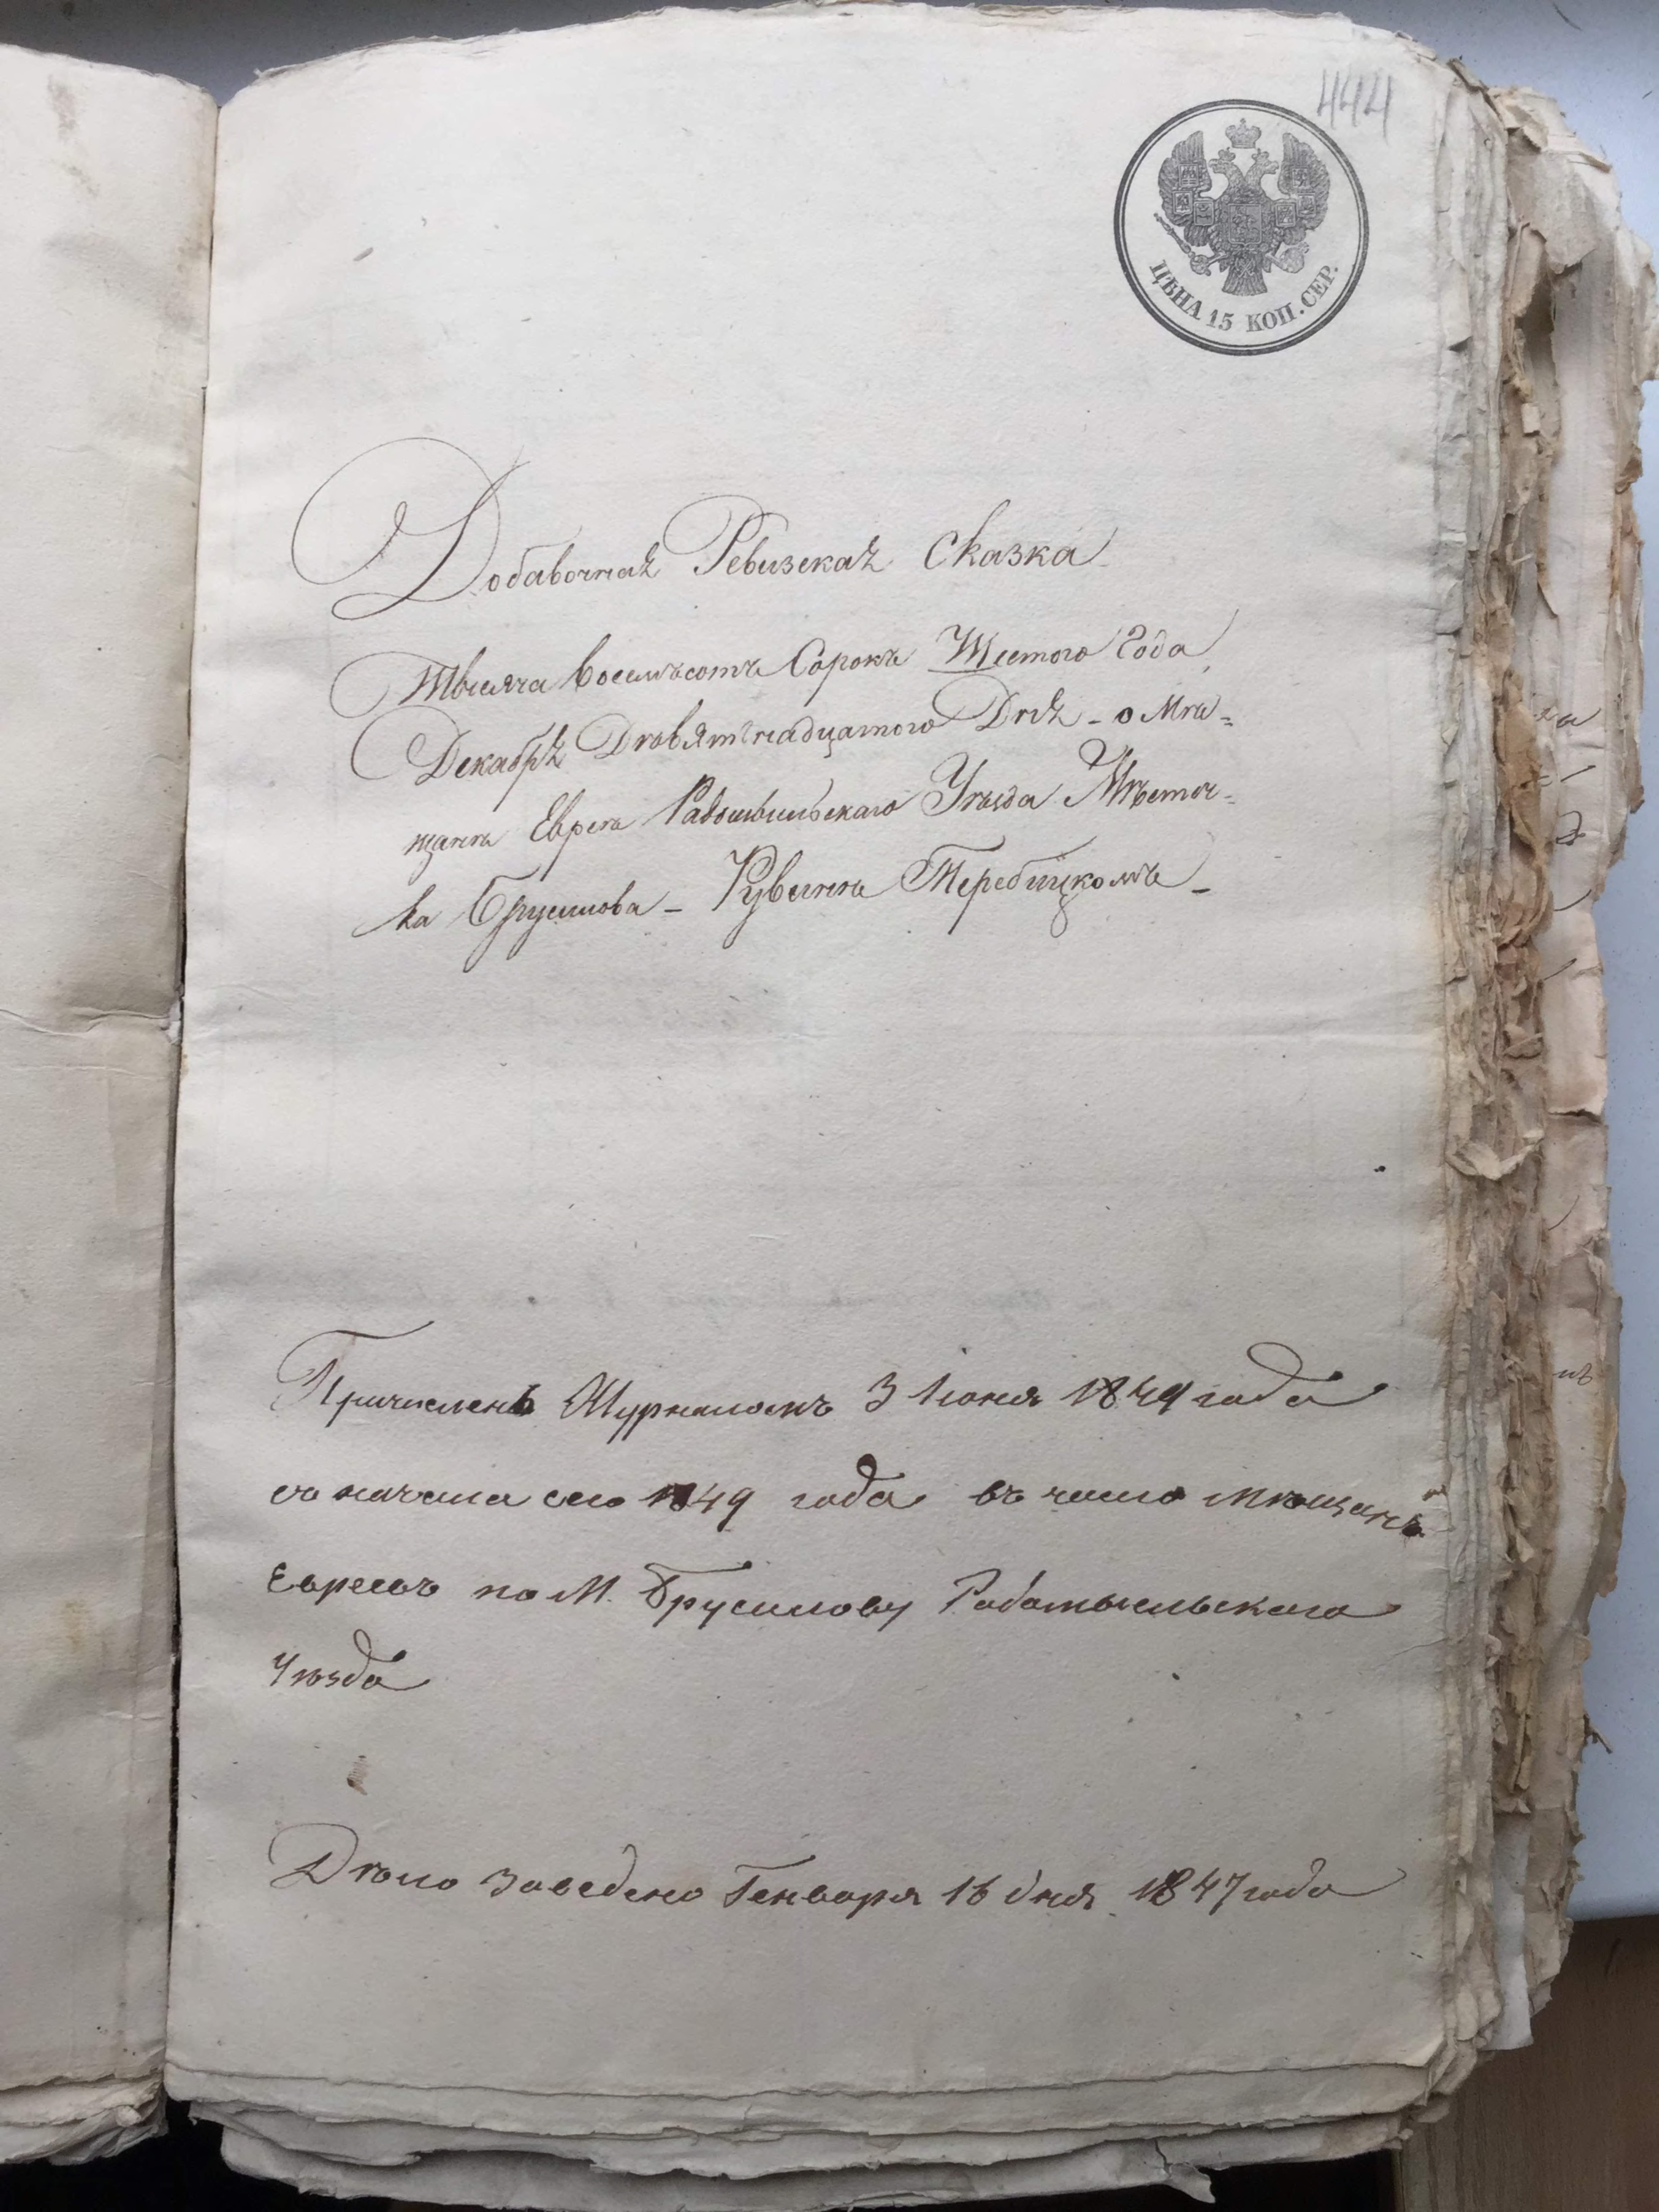 444
ЦѢНА 15 КОП. СЕР.
Добавочная Ревизская Сказка
Тысяча восемьсотъ Сорокъ Шестого Года
Декабря Девятьнадцатого Дня - о Мѣ=
щанѣ Евреѣ Радомысльскаго Уѣзда Мѣстеч=
ка Брусилова - Рувинѣ Теребицкомъ -
Причисленъ Журналомъ 3 Іюня 1849 года
съ начала сего 1849 года въ число мѣщанъ
Евреевъ по М. Брусилову Радомысльскаго
Уѣзда
Дѣло заведено Генваря 16 дня 1847 года